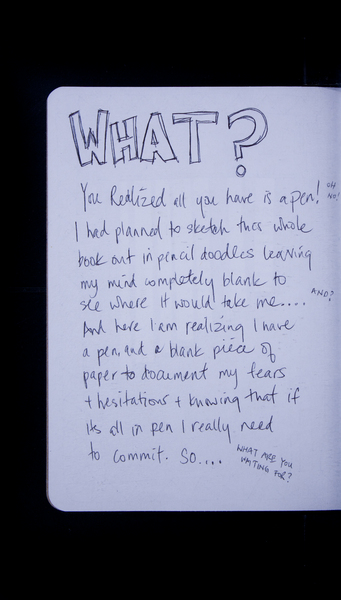 WHAT?
You Realized all you have is a pen! OH NO!
I had planned to sketch this whole
book out in pencil doodles leaving
my mind completely blank to
see where it would take me.... AND?
And here I am realizing I have
a pen, and a blank piece of
paper to document my fears
+ hesitations + knowing that if
its all in pen I really need
to commit. So....
WHAT ARE YOU
WAITING FOR?